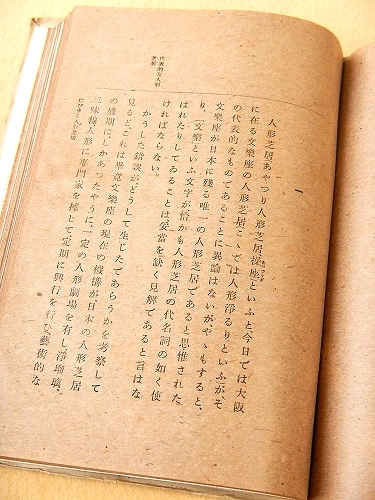 一
人形芝居あやつり人形芝居操座といふと今日では大阪
に在る文樂座の人形芝居こゝでは人形淨るりといふがそ
の代表的なものであることに異論はないが、やゝもすると、
文樂座が日本に殘る唯一の人形芝居であると思惟された
り、「文樂」といふ文字が恰かも人形芝居の代名詞の如く使
はれたりしてゐることは妥當を缺く見解であると言はな
ければならない。
かうした錯誤がどうして生じたであらうかを考察して
見ると、これは畢竟文樂座の現在の機構が日本の人形芝居
の盛期にしかあつたやうに、一定の人形劇場を有し淨瑠璃、
三味線、人形に專門家を擁して定期に興行を行ひ、藝術的な
代表的な人形
芝居